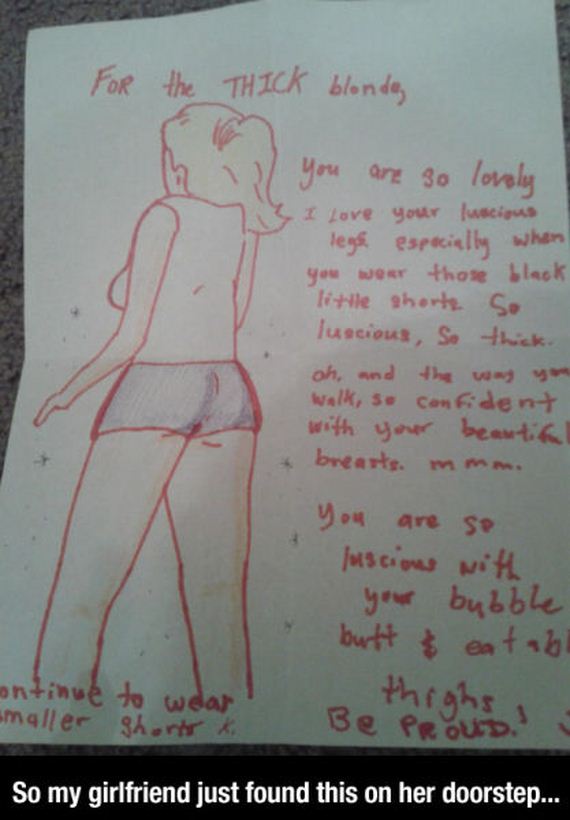 For the THICK blonde,
You are so lovely
I love your luscious
legs especially when
you wear those black
little shorts So
luscious, So thick.
oh, and the way you
walk, so confident
with your beautiful
breasts. m m m.
You are so
luscious with
your bubble
butt & eatabl
thighs
Be PROUD!
ontinue to wear
maller shorts x.
So my girlfriend just found this on her doorstep...